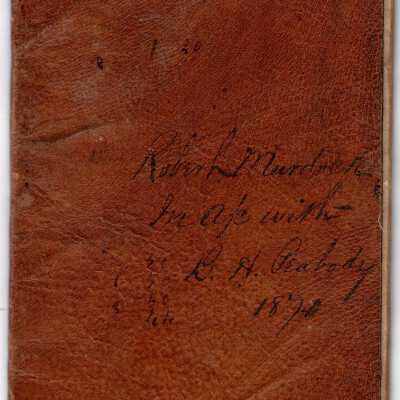 1 20
Robert Murdock
In a/c with
H. Peabody
1870